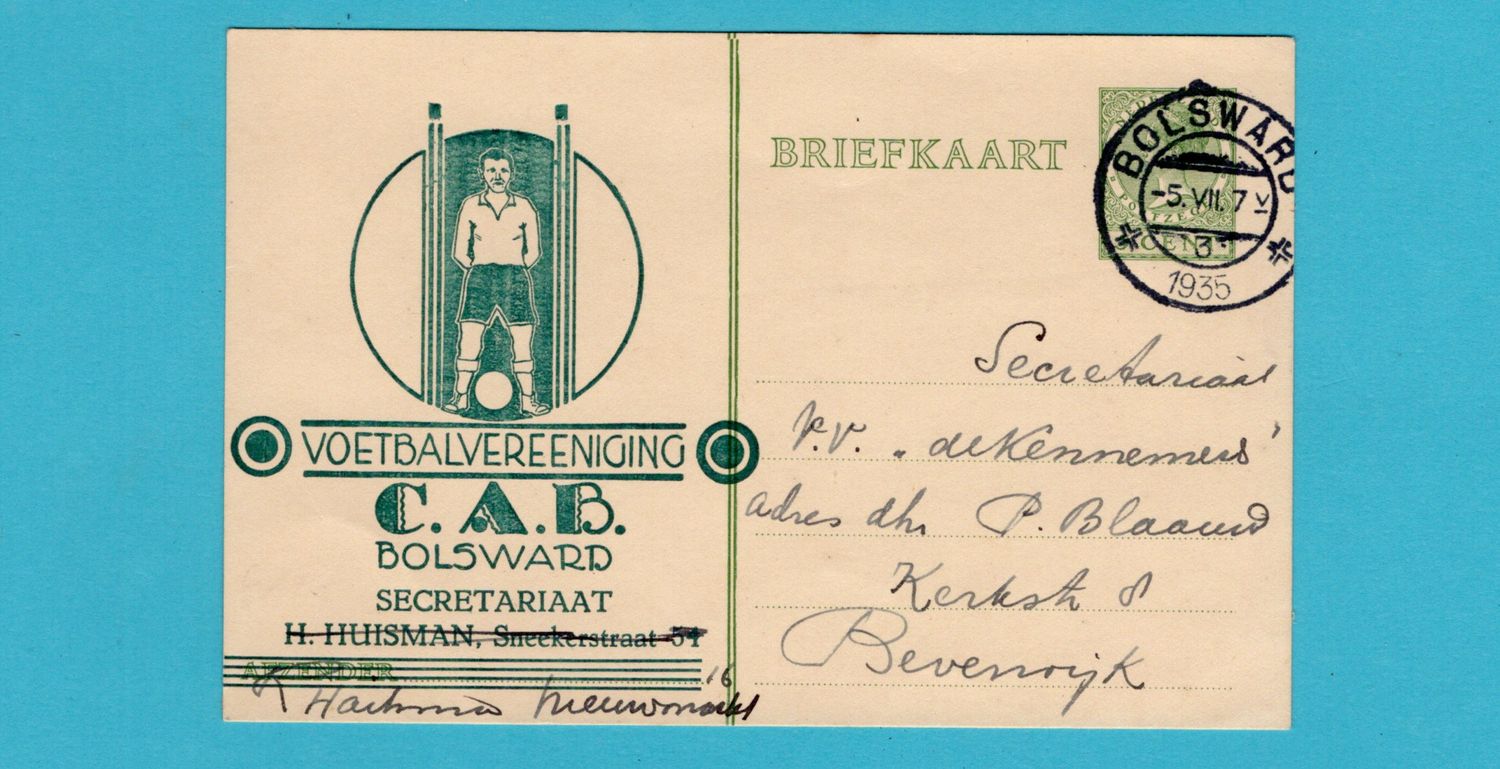 VOETBALVEREENIGING
C.A.B.
BOLSWARD
SECRETARIAAT
H. HUISMAN, Sneekerstraat 54
AFZENDER
16
Nieuwmarkt
BRIEFKAART
BOLSWARD
-5.VII.7
1935
POSTZEGEL
CENT
Secretariaat
v.v. „de Kennemers"
adres dhr P. Blaauw
Kerkstr 8
Beverwijk